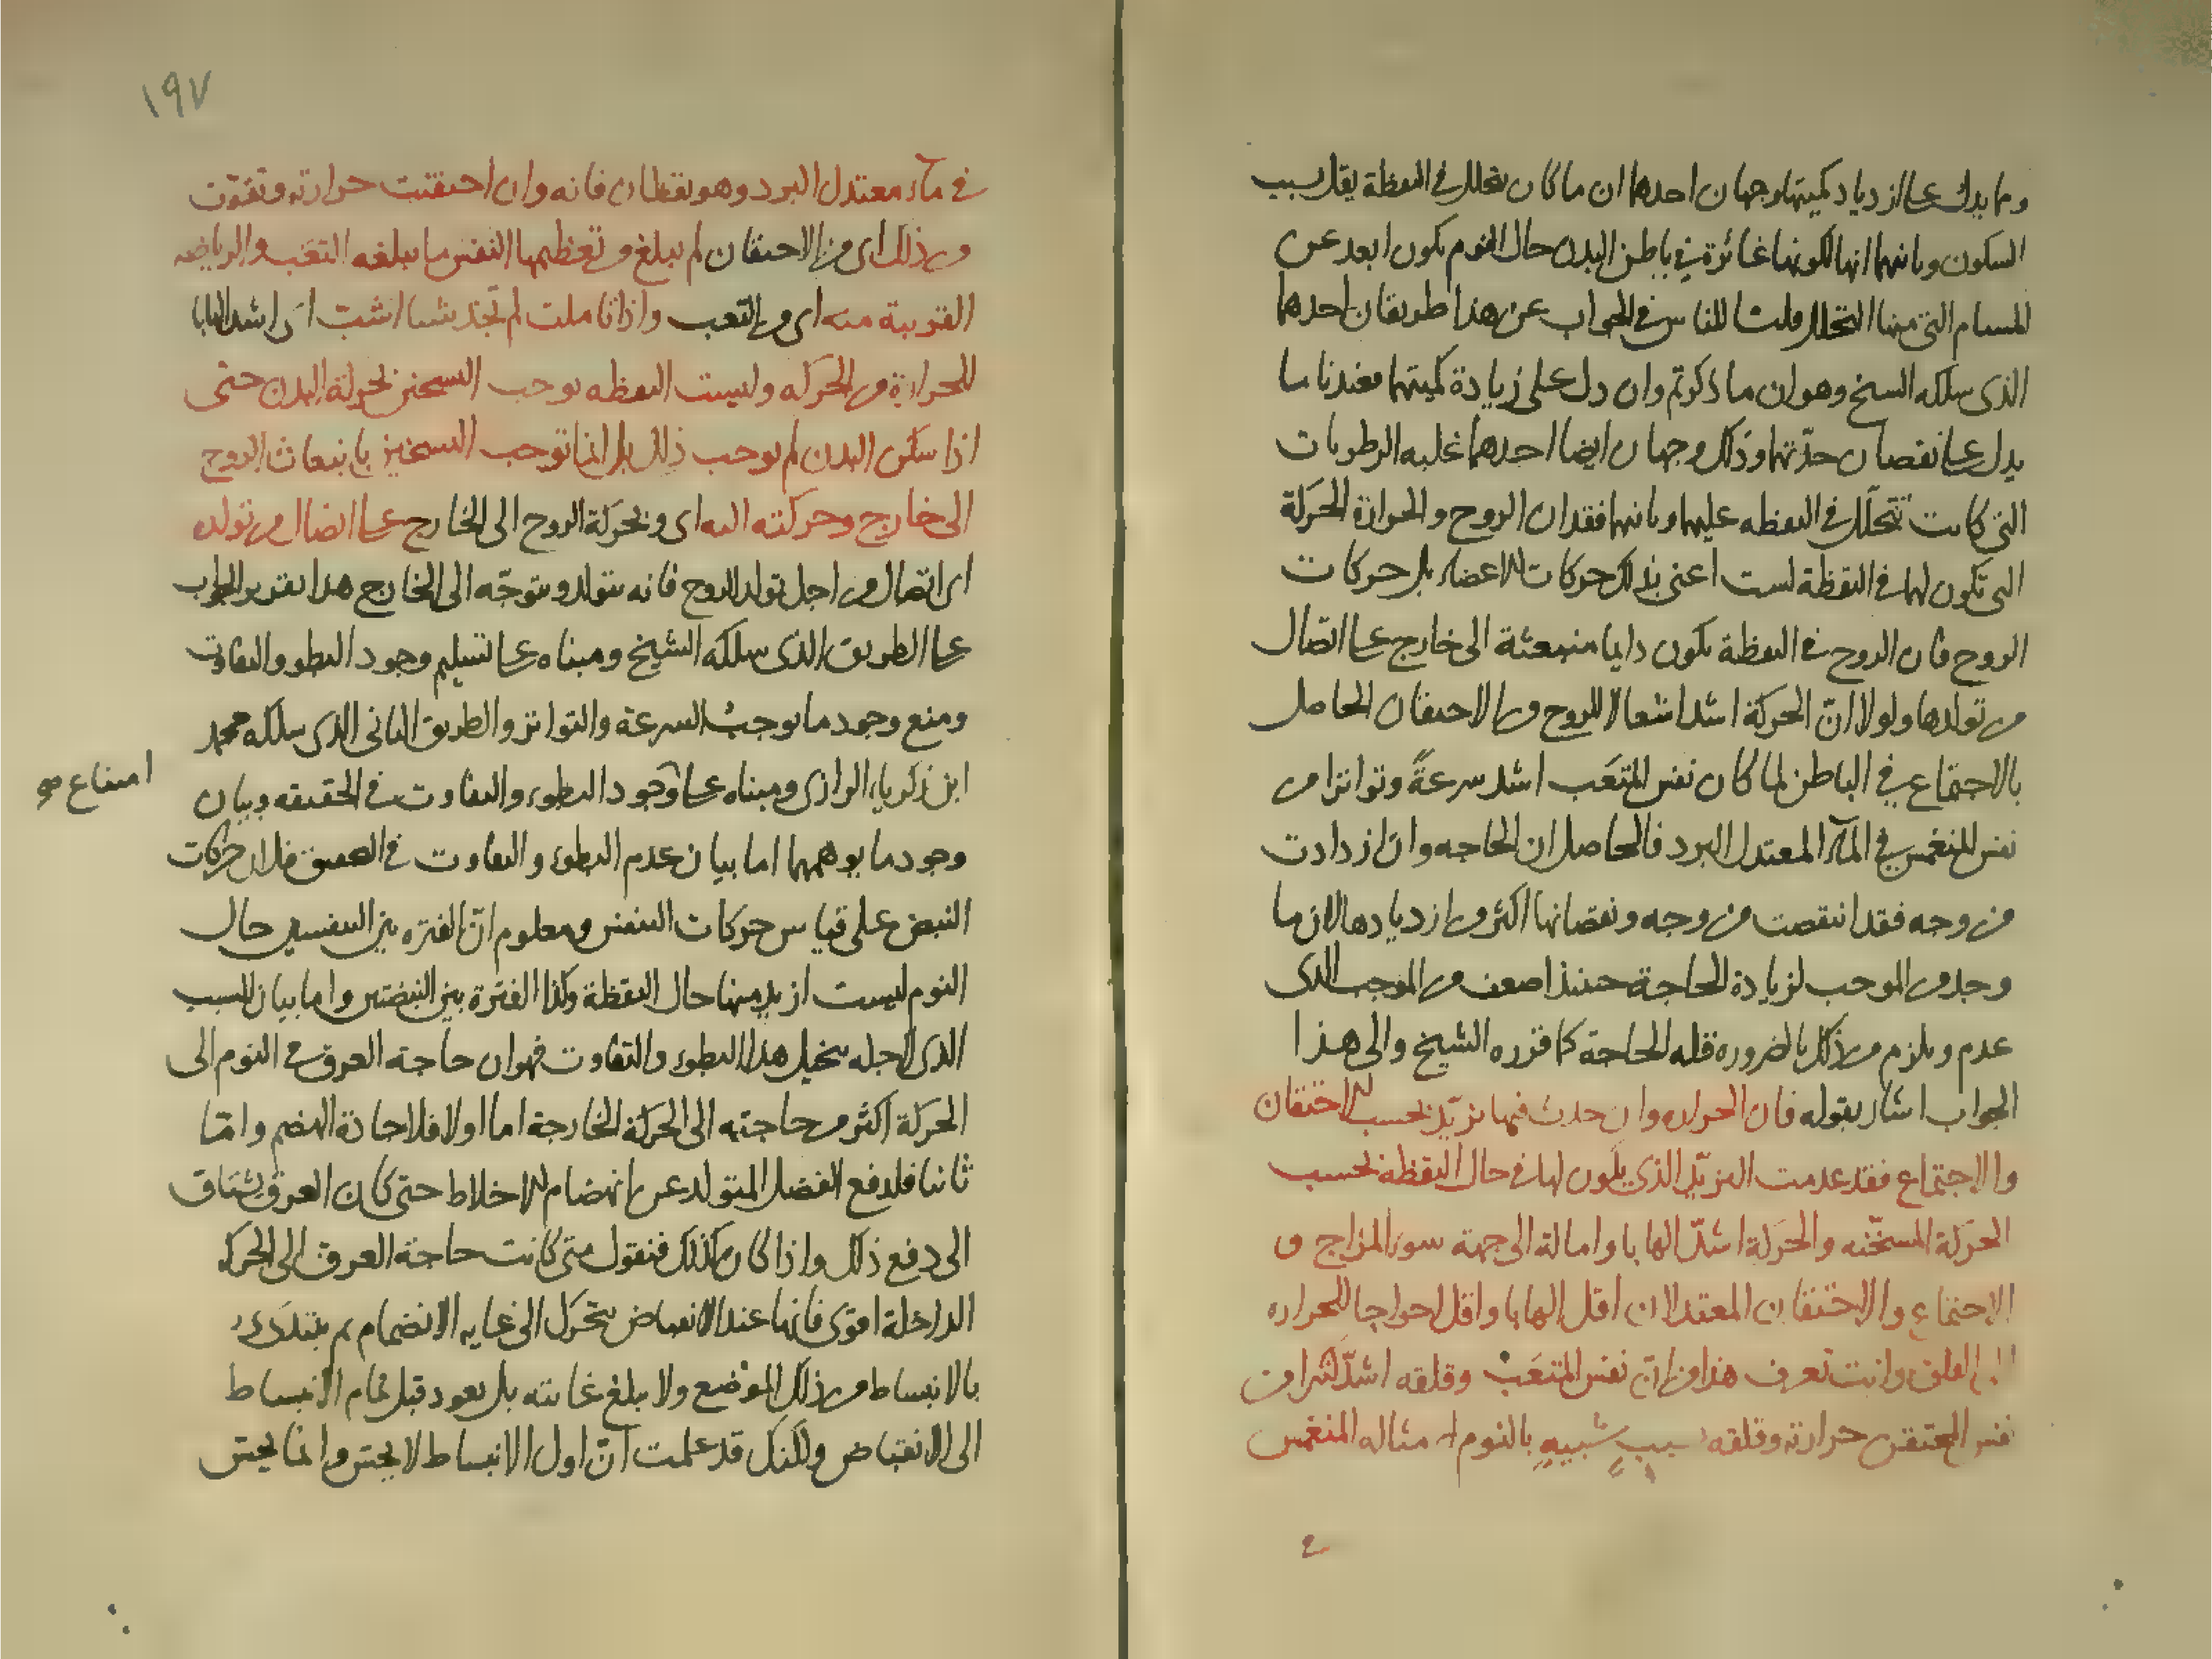 ومما يدل على ازدياد كميتها وجهان احدهما ان ما كان يتحلل في اليقظة يقل بسبب
السكون وثانيهما انها لكونها غائرة في باطن البدن حال النوم يكون ابعد عن
المسام التي منها التحلل قلت للناس في الجواب عن هذا طريقان احدهما
الذي سلكه الشيخ وهو ان ما ذكرتم وان دل على زيادة كميتها فعندنا ما
يدل على نقصان حدتها وذلك وجهان ايضا احدهما غلبه الرطوبات
التي كانت تتحلل في اليقظه عليها وثانيهما فقدان الروح والحرارة الحركة
التي تكون لها في اليقظة لست اعني بذلك حركات الاعضاء بل حركات
الروح فان الروح في اليقظة يكون دايما منبعثة الى خارج على اتصال
من تولدها ولولا ان الحركة اشد اشعالا للروح من الاحتقان الحاصل
بالاجتماع في الباطن لما كان نفس المتعب اشد سرعة وتواترا من
نفس المنغمس في الماء المعتدل البرد فالحاصل ان الحاجه وان ازدادت
من وجه فقد انتقصت من وجه ونقصانها اكثر من ازديادها لان ما
وجد من الموجب لزيادة الحاجة حينئذ اضعف من الموجب الذي
عدم ويلزم من ذلك بالضروره قله الحاجة كما قرره الشيخ والى هذا
الجواب اشار بقوله فان الحراره وان حدث فيها تزيد بحسب الاحتقان
والاجتماع فقد عدمت التزيد الذي يكون لها في حال اليقظة بحسب
الحركة المسخنه والحركة اشد الهابا وامالة الى جهة سوء المزاج و
الاجتماع والاحتقان المعتدلان اقل الهابا واقل احراجا للحراره
الى القلق وانت تعرف هذا من ان نفس المتعب وقلقه اشد كثيرا من
نفس المحتقن حرارته وقلقه بسبب شبيه بالنوم مثاله المنغمس
في ماء معتدل البرد وهو يقظان فانه وان احتقنت حرارته وتقوت
من ذلك اى من الاحتقان لم يبلغ من تعظيمها النفس ما يبلغه التعب والرياضه
القريبة منه اى من التعب واذا تاملت لم تجد شيئا اشب اى اشد الهابا
للحرارة من الحركه وليست اليقظه توجب التسخين بحركة البدن حتى
اذا سكن البدن لم يوجب ذلك بل انما توجب التسخين بانبعاث الروح
الى خارج وحركته اليه اى وبحركة الروح الى الخارج على اتصال من تولده
اى اتصال من اجل تولد الروح فانه يتولد ويتوجه الى الخارج هذا تقرير الجواب
على الطريق الذي سلكه الشيخ ومبناه على تسليم وجود البطو والتفاوت
ومنع وجود ما يوجب السرعة والتواتر والطريق الثاني الذي سلكه محمد
ابن زكرياء الرازي ومبناه على وجود البطوء والتفاوت في الحقيقه وبيان
امتناع صح
وجود ما يوهمهما اما بيان عدم البطوء والتفاوت في العميق فلان حركات
النبض على قياس حركات التنفس ومعلوم ان الفتره بين النفسين حال
النوم ليست ازيد منها حال اليقظة وكذا الفترة بين النبضتين واما بيان السبب
الذي لاجله يتخيل هذا البطوء والتفاوت فهو ان حاجة العرق في النوم الى
الحركة اكثر من حاجته الى الحركة الخارجة اما اولا فلاجادة الهضم واما
ثانيا فلدفع الفضل المتولد عن انهضام الاخلاط حتى كان العرق يشتاق
الى دفع ذلك واذا كان كذلك فنقول متى كانت حاجة العرق الى الحركه
الداخلة اقوى فانها عند الانقباض يتحرك الى غايه الانضمام ثم يبتدىء
بالانبساط من ذلك الموضع ولا يبلغ غايته بل يعود قبل تمام الانبساط
الى الانقباض ولكنك قد علمت ان اول الانبساط لا يحس وانما يحس
١٩٧